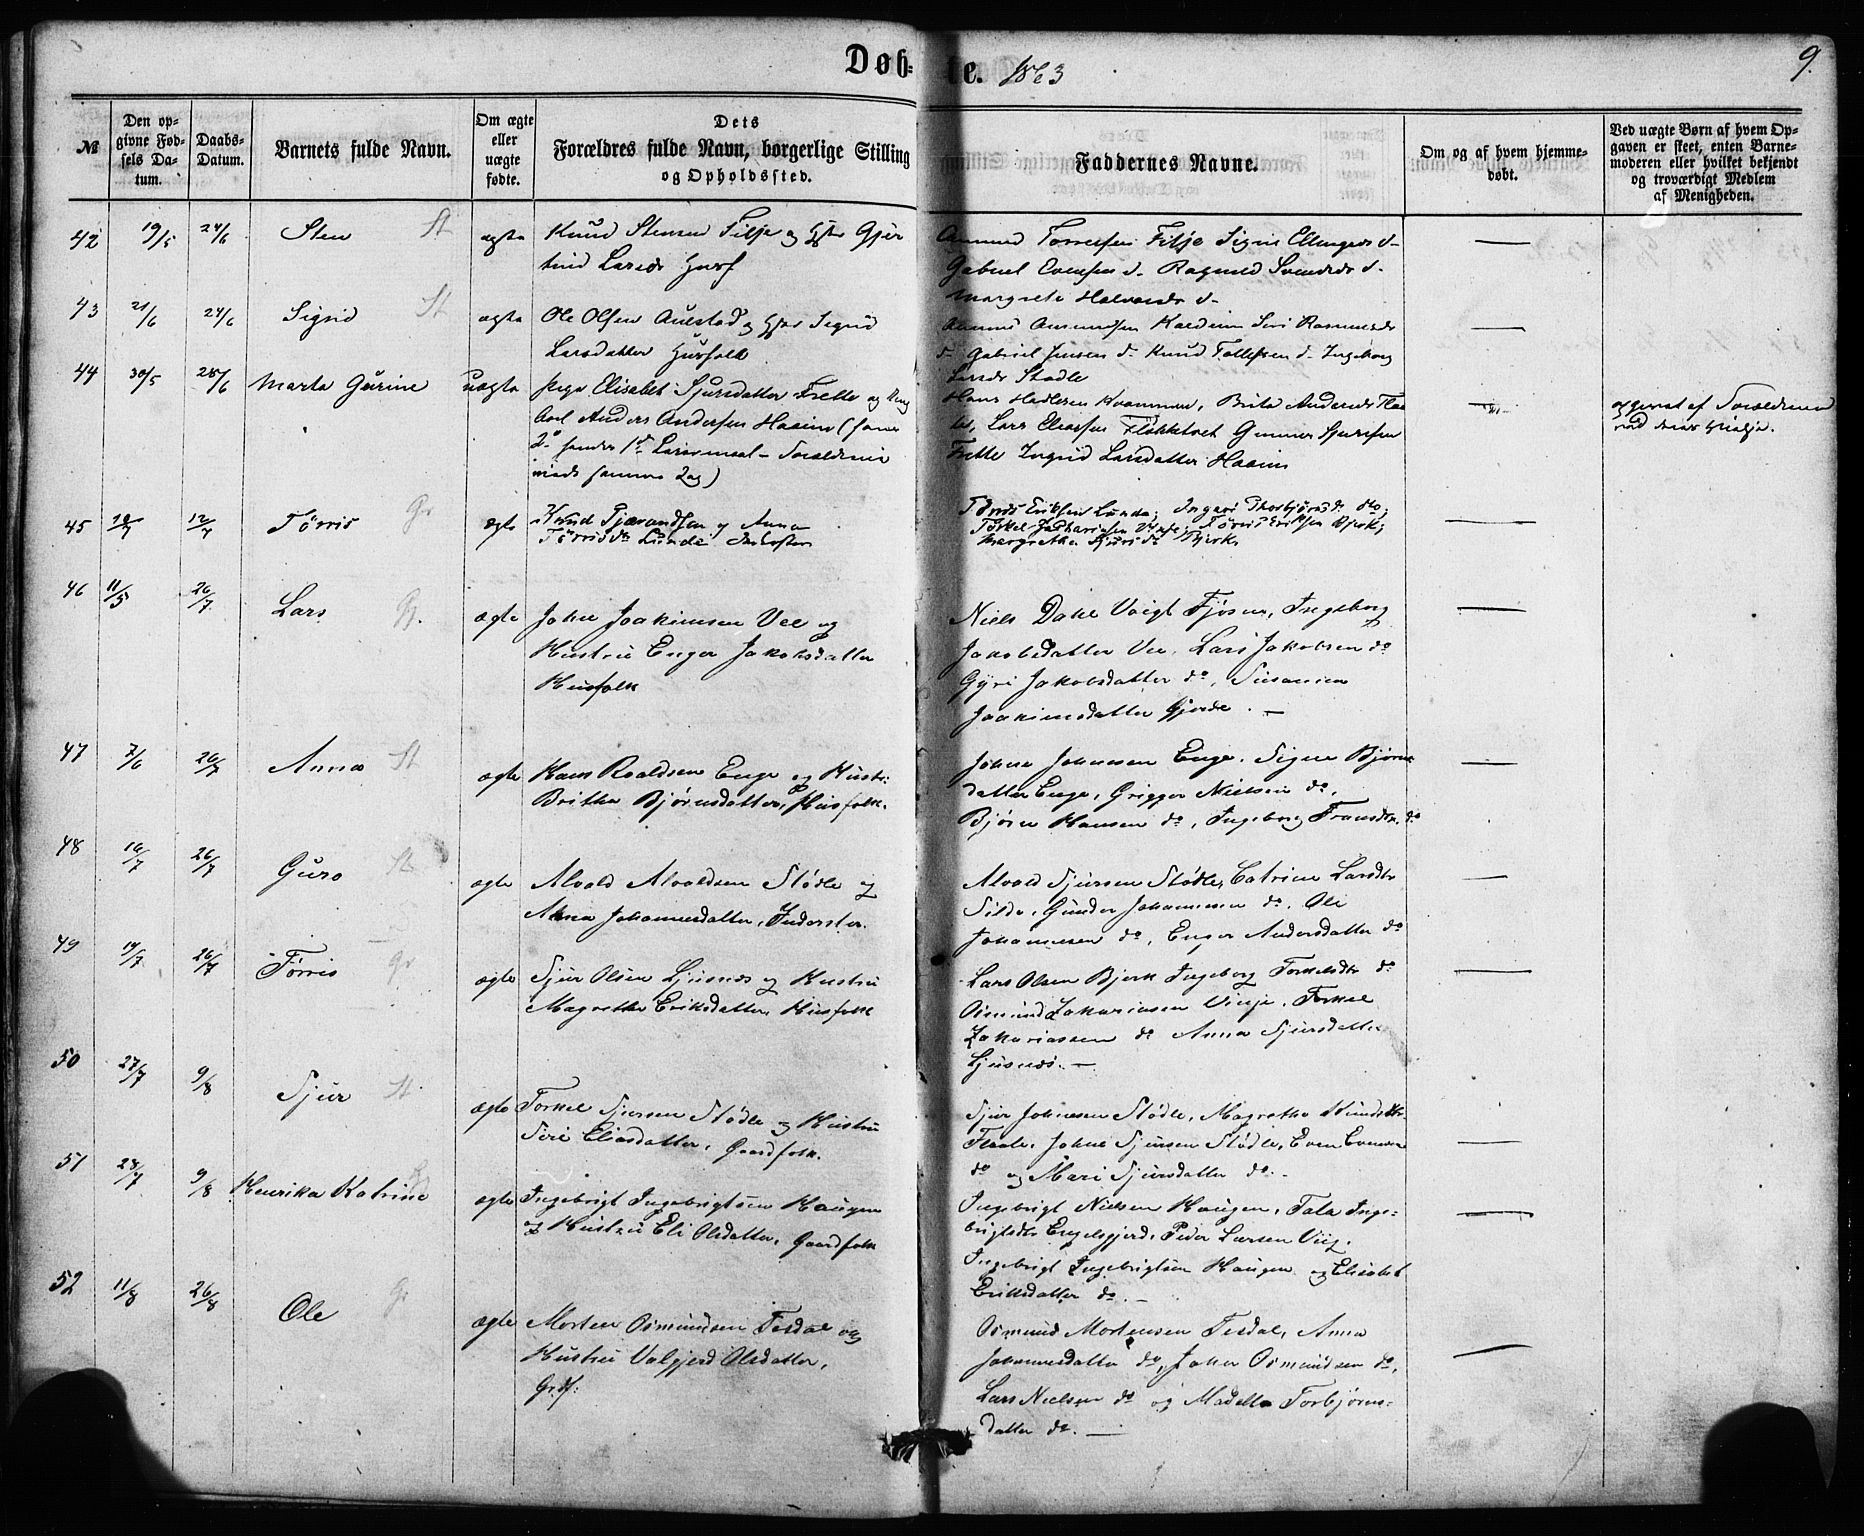 Døb-te. 1863
9.
№
Den op-
givne Fød-
sels Da-
tum.
Daabs-
Datum.
Barnets fulde Navn.
Om ægte
eller
uægte
fødte.
Dets
Forældres fulde Navn, borgerlige Stilling
og Opholdssted.
Faddernes Navne.
Om og af hvem hjemme-
døbt.
Ved uægte Børn af hvem Op-
gaven er skeet, enten Barne-
moderen eller hvilket bekjendt
og troværdigt Medlem
af Menigheden.
42 19/5 24/6 Sten St ægte Knud Stensen Silje og Hstr Gjer
trud Larsdr Husf
Torresen Silje Signi Ellingsdr d-
Gabriel Evensen d- Ragnild Svendsdr d-
Margrete Halvorsdr d-
43 21/6 24/6 Sigrid St ægte Ole Olsen Aulestad og Hstr Sigrid
Larsdatter Husfolk
Amund Amundsen Siri Rasmusdr
do Gabriel Jensen do Knud Tollefsen do Ingeborg
Larsdr Stødle
44 30/5 28/6 Marta Gurine uægte Pige Elisabet Sjursdatter Frette og Ung
karl Anders Andersen Haaeim (hans
2det hendes 1ste Leiermaal - Forældrene
viede samme Dag)
Hans Hadlesen Kvammen, Brita Andersdr
Lars Eliassen Fløkketvet Gunnar Sjursen
Frette Ingrid Larsdatter Haaeim
opgivet af Forældrene
ved deres Vielse.
45 10/7 12/7 Tørris Gr ægte Knud Tjerandsen og Anna
Tørrisdtr Lunde Inderster
Tørris Eriksen Lunde, Ingeri Thorbjørnsdr do,
Torkel Zachariasen Vinje, Tørris Eriksen Bjerk,
Margrethe Sjursdr Bjerk
46 11/5 26/7 Lars Gr. ægte John Joakimsen Vee og
Hustru Enger Jakobsdatter
Husfolk
Niels Dahl Voigt Fjøsne, Ingeborg
Jakobsdatter Vee, Lars Jakobsen do
Gyri Jakobsdatter do, Susanna
Joakimsdatter Gjerde. -
47 7/6 26/7 Anna St ægte Hans Roaldsen Enge og Hustr:
Britha Bjørnsdatter, Husfolk.
Johne Johnesen Enge. Signe Bjørns
datter Enge, Grigger Nielsen do,
Bjørn Hansen do, Ingeborg Fransdtr. do
48 16/7 26/7 Guro St ægte Alvald Alvaldsen Stødle og
Anna Johannesdatter, Inderster.
Alvald Sjursen Stødle, Catrine Larsdtr
Silde, Gunder Johannesen do, Ole
Johannesen do, Enger Andersdatter do
49 19/7 26/7 Tørris Gr ægte Sjur Olsen Ljusnes og Hustru
Magrethe Eriksdatter, Husfolk
Lars Olsen Bjerk Ingeborg Torkelsdtr do
Osmund Zakariasen Vinje, Torkel
Zakariassen do Anna Sjursdatter
Ljusnes. -
50 27/7 9/8 Sjur St. ægte Torkel Sjursen Stødle og Hustru
Siri Eliasdatter, Gaardfolk.
Sjur Johnesen Stødle, Magrethe Knudsdtr
Johne Sjursen Stødle, Even Evensen
do og Mari Sjursdatter do. -
51 28/7 9/8 Henrika Katrine ægte Ingebrigt Ingebrigtsen Haugen
og Hustru Eli Olsdatter, Gaardfolk
Ingebrigt Nielsen Haugen, Tala Inge-
brigtsdtr Engelsgjerd, Peder Larsen Viig,
Ingebrigt Ingebrigtsen Haugen og Elisabet
Eriksdatter do. -
52 11/8 26/8 Ole Gr ægte Morten Osmundsen Tesdal og
Hustru Valgjerd Olsdatter,
Grdf:
Osmund Mortensen Tesdal, Anna
Johannesdatter do, John Osmundsen do,
Lars Nielsen do og Madella Torbjørns-
datter do. -